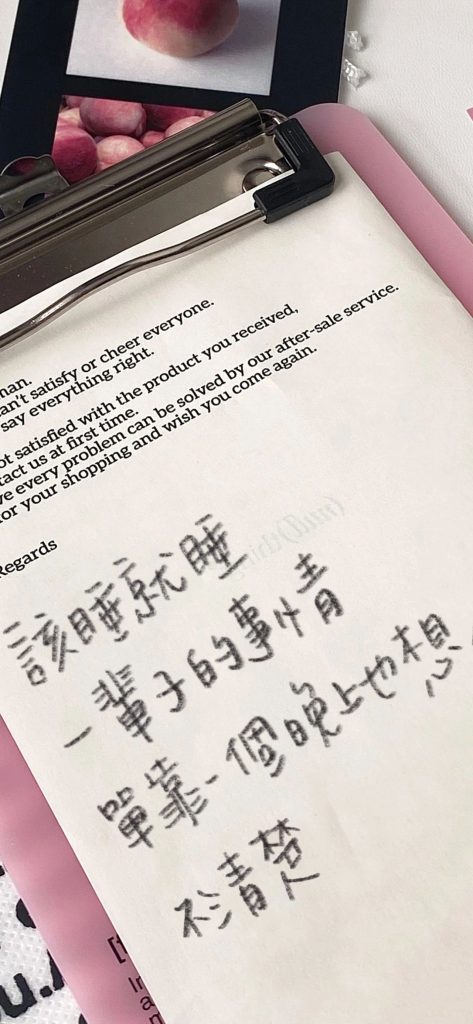 an't satisfy or cheer everyone.
say everything right.
satisfied with the product you received,
us at first time.
every problem can be solved by our after-sale service.
for your shopping and wish you come again.
Regards
該睡就睡
一輩子的事情
單靠一個晚上也想
不清楚